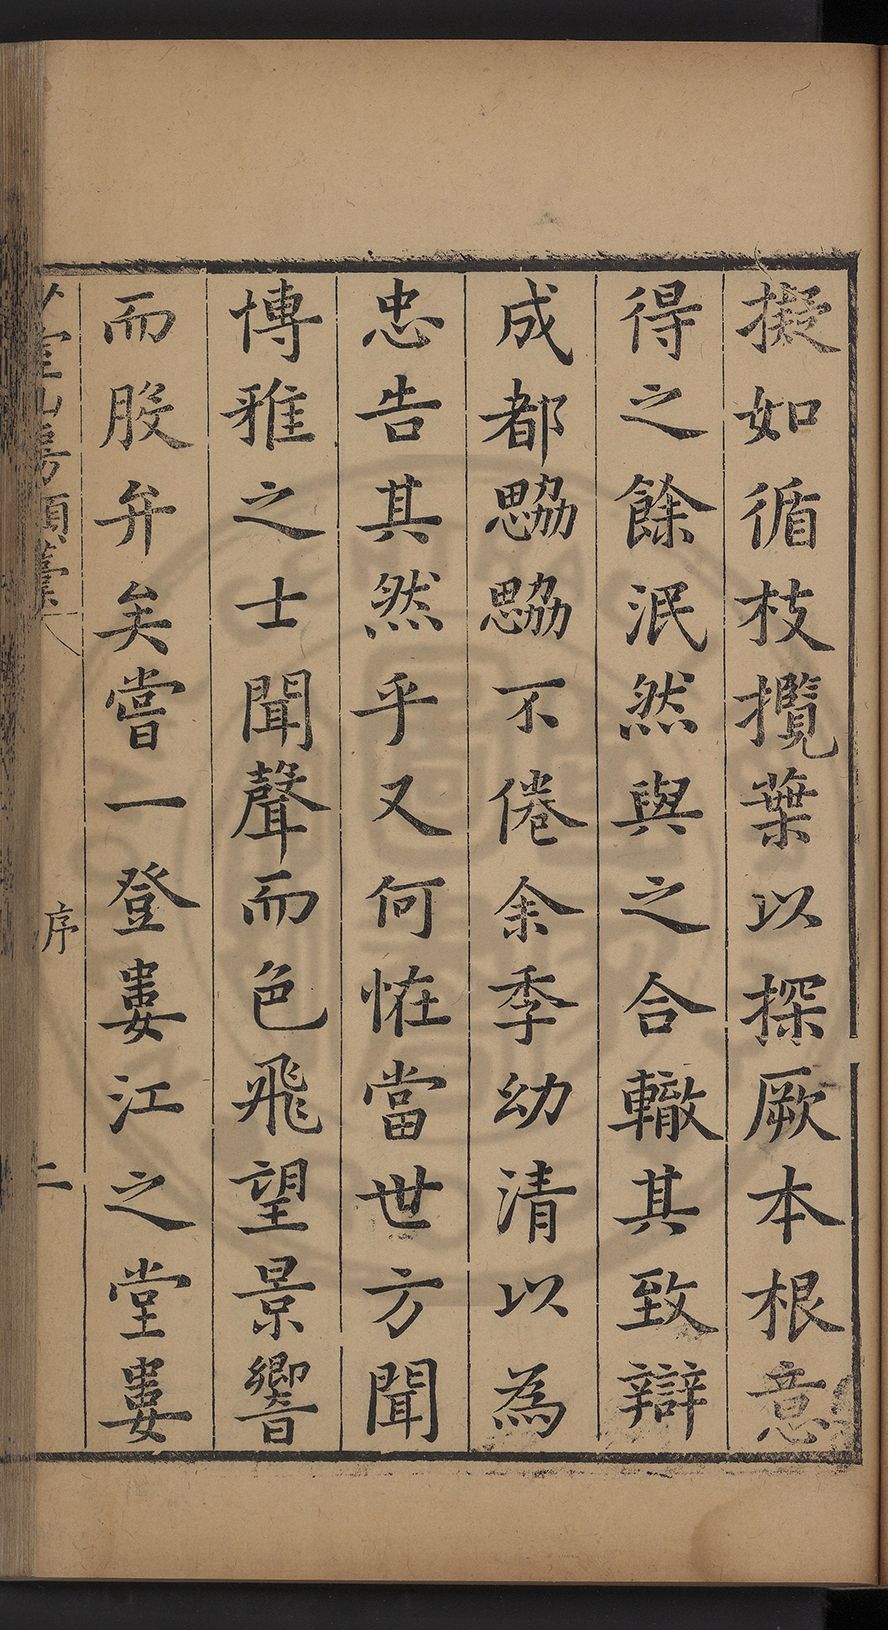 擬如循枝攬葉以探厥本根意
得之餘泯然與之合轍其致辯
成都勰勰不倦余季幼清以為
忠告其然乎又何恠當世方聞
博雅之士聞聲而色飛望景響
而股弁矣嘗一登婁江之堂婁
少室山房類藁 序 二